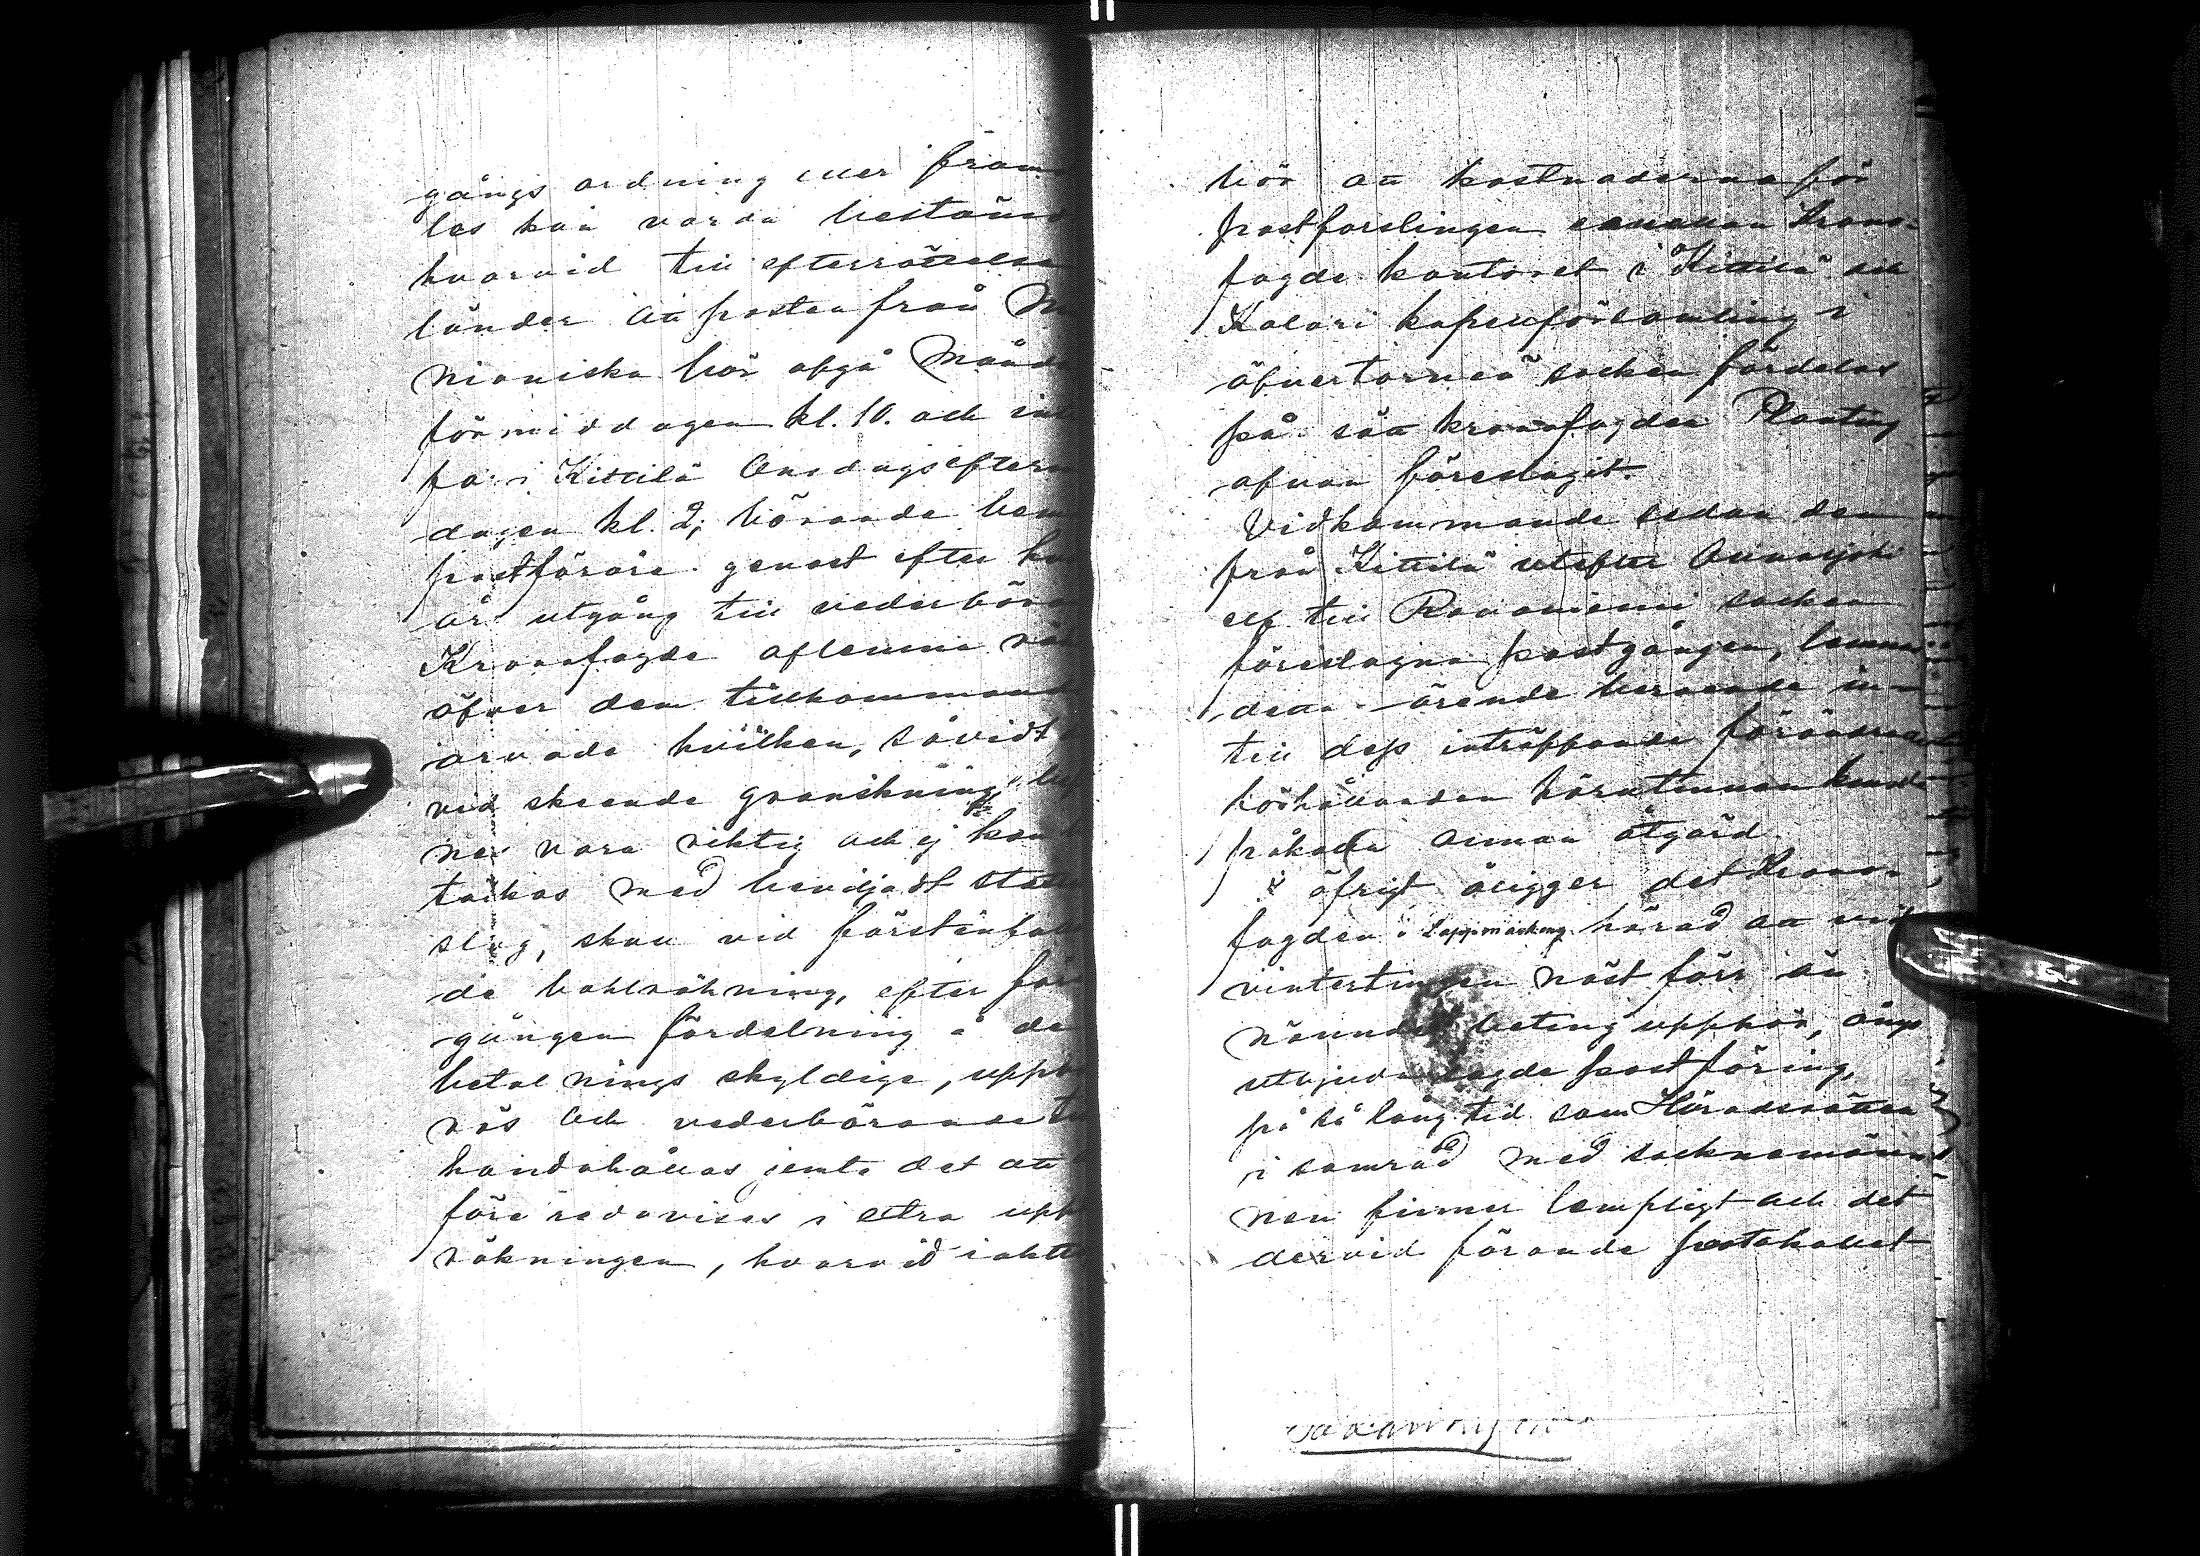 gångs ordning eller fram
las kan varda bestämd
hvarvid till efterrättelse
länder att posten från M
nioniska bör afgå Månd
förmiddagen kl. 10. och in
fa i Kittilä Onsdagsefterm
dagen kl. 2; börande bem
postförare genast efter hv
års utgång till vederböra
Kronofogde aflemna räk
öfver den tillkommand
arvode hvilken, såvidt
vid skeende granskning, be
nes vara riktig och ej kan
täckas med beviljadt stats
slag, skall vid förstinfall
de bohlräkning, efter för
gången fördelning å de
betalnings skyldige, uppb
ras och vederbörande t
handahållas jemte det att
före redovises i extra upp
räkningen, hvarvid iaktt
bör att kostnaderna för
postforslingen emellan Krono-
fogde kontoret i Kittilä och
Kolari kapellförsamling i
öfvertorneå socken fördelas
på sätt kronofogden Planting
ofvan föreslagit.
Vidkommande sedan den
från Kittilä utefter Ounasjoki
elf till Rovaniemi socken
föreslagna postgången, lemnas
detta ärende beroende in-
till dess inträffande förändrade
förhållanden härutinnan kunde
påkalla annan åtgärd.
I öfrigt åligger det Krono-
fogden i Lappmarkens härad att vid
vintertingen näst förr än
nämnde beting upphör, ånyo
utbjuda sagde postföring,
på så lång tid som Häradsrätten
i samråd med socknemän-
nen finner lämpligt och det
dervid förande protokollet